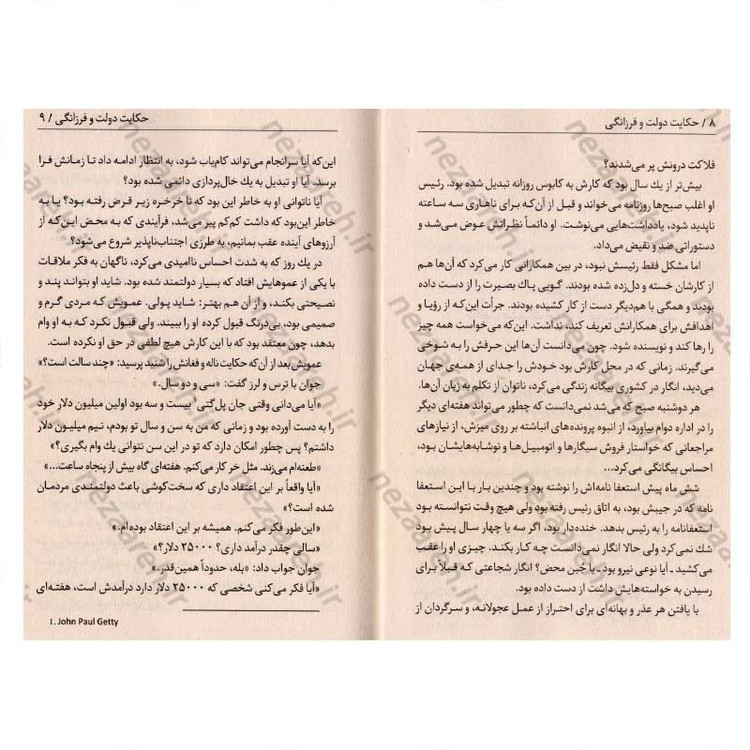 ۸ / حکایت دولت و فرزانگی
فلاکت درونش پر می‌شدند؟
بیش‌تر از یك سال بود که کارش به کابوس روزانه تبدیل شده بود. رئیس
او اغلب صبح‌ها روزنامه می‌خواند و قبل از آن‌که برای ناهاری سه ساعته
ناپدید شود، یادداشت‌هایی می‌نوشت. او دائماً نظراتش عوض می‌شد و
دستوراتی ضد و نقیض می‌داد.
اما مشکل فقط رئیسش نبود، در بین همکارانی کار می‌کرد که آن‌ها هم
از کارشان خسته و دل‌زده شده بودند. گویی پاك بصیرت را از دست داده
بودند و همگی با هم‌دیگر دست از کار کشیده بودند. جرأت این‌که از رؤیا و
اهدافش برای همکارانش تعریف کند، نداشت. این‌که می‌خواست همه چیز
را رها کند و نویسنده شود. چون می‌دانست آن‌ها این حرفش را به شوخی
می‌گیرند. زمانی که در محل کارش بود خودش را جدای از همه‌ی جهان
می‌دید، انگار در کشوری بیگانه زندگی می‌کرد، ناتوان از تکلم به زبان آن‌ها.
هر دوشنبه صبح که می‌شد نمی‌دانست که چطور می‌تواند هفته‌ای دیگر
را در اداره دوام بیاورد، از انبوه پرونده‌های انباشته بر روی میزش، از نیازهای
مراجعانی که خواستار فروش سیگارها و اتومبیل‌ها و نوشابه‌هایشان بود،
احساس بیگانگی می‌کرد...
شش ماه پیش استعفا نامه‌اش را نوشته بود و چندین بار با این استعفا
نامه که در جیبش بود، به اتاق رئیس رفته بود ولی هیچ وقت نتوانسته بود
استعفانامه را به رئیس بدهد. خنده‌دار بود، اگر سه یا چهار سال پیش بود
شك نمی‌کرد ولی حالا انگار نمی‌دانست چه کار بکند. چیزی او را عقب
می‌کشید ـ آیا نوعی نیرو بود ـ یا جُبن محض؟ انگار شجاعتی که قبلاً برای
رسیدن به خواسته‌هایش داشت از دست داده بود.
با یافتن هر عذر و بهانه‌ای برای احتراز از عمل عجولانه، و سرگردان از
حکایت دولت و فرزانگی / ۹
این‌که آیا سرانجام می‌تواند کام‌یاب شود، به انتظار ادامه داد تا زمانش فرا
برسد. آیا او تبدیل به یك خال‌پردازی دائمی شده بود؟
آیا ناتوانی او به خاطر این بود که تا خرخره زیر قرض رفته بود؟ یا به
خاطر این‌بود که داشت کم‌کم پیر می‌شد، فرآیندی که به محض این‌که از
آرزوهای آینده عقب بمانیم، به طرزی اجتناب‌ناپذیر شروع می‌شود؟
در یك روز که به شدت احساس ناامیدی می‌کرد، ناگهان به فکر ملاقات
با یکی از عموهایش افتاد که بسیار دولتمند شده بود. شاید او بتواند پند و
نصیحتی بکند، و از آن هم بهتر: شاید پولی. عمویش که مردی گرم و
صمیمی بود، بی‌درنگ قبول کرده او را ببیند. ولی قبول نکرد که به او وام
بدهد، چون معتقد بود که با این کارش هیچ لطفی در حق او نکرده است.
عمویش بعد از آن‌که حکایت ناله و فغانش را شنید پرسید: «چند سالت است؟»
جوان با ترس و لرز گفت: «سی و دو سال.»
«آیا می‌دانی وقتی جان پل‌گتی¹ بیست و سه بود اولین میلیون دلار خود
را به دست آورده بود و زمانی که من به سن و سال تو بودم، نیم میلیون دلار
داشتم؟ پس چطور امکان دارد که تو در این سن نتوانی یك وام بگیری؟»
«طعنه‌ام می‌زند. مثل خر کار می‌کنم. هفته‌ای گاه بیش از پنجاه ساعت...»
«آیا واقعاً بر این اعتقاد داری که سخت‌کوشی باعث دولتمندی مردمان
شده است؟»
«این‌طور فکر می‌کنم. همیشه بر این اعتقاد بوده‌ام.»
«سالی چقدر درآمد داری؟ ۲۵۰۰۰ دلار؟»
جوان جواب داد: «بله، حدوداً همین‌قدر.»
«آیا فکر می کنی شخصی که ۲۵۰۰۰۰ دلار دارد درآمدش است، هفته‌ای
1. John Paul Getty
nezaareh.ir